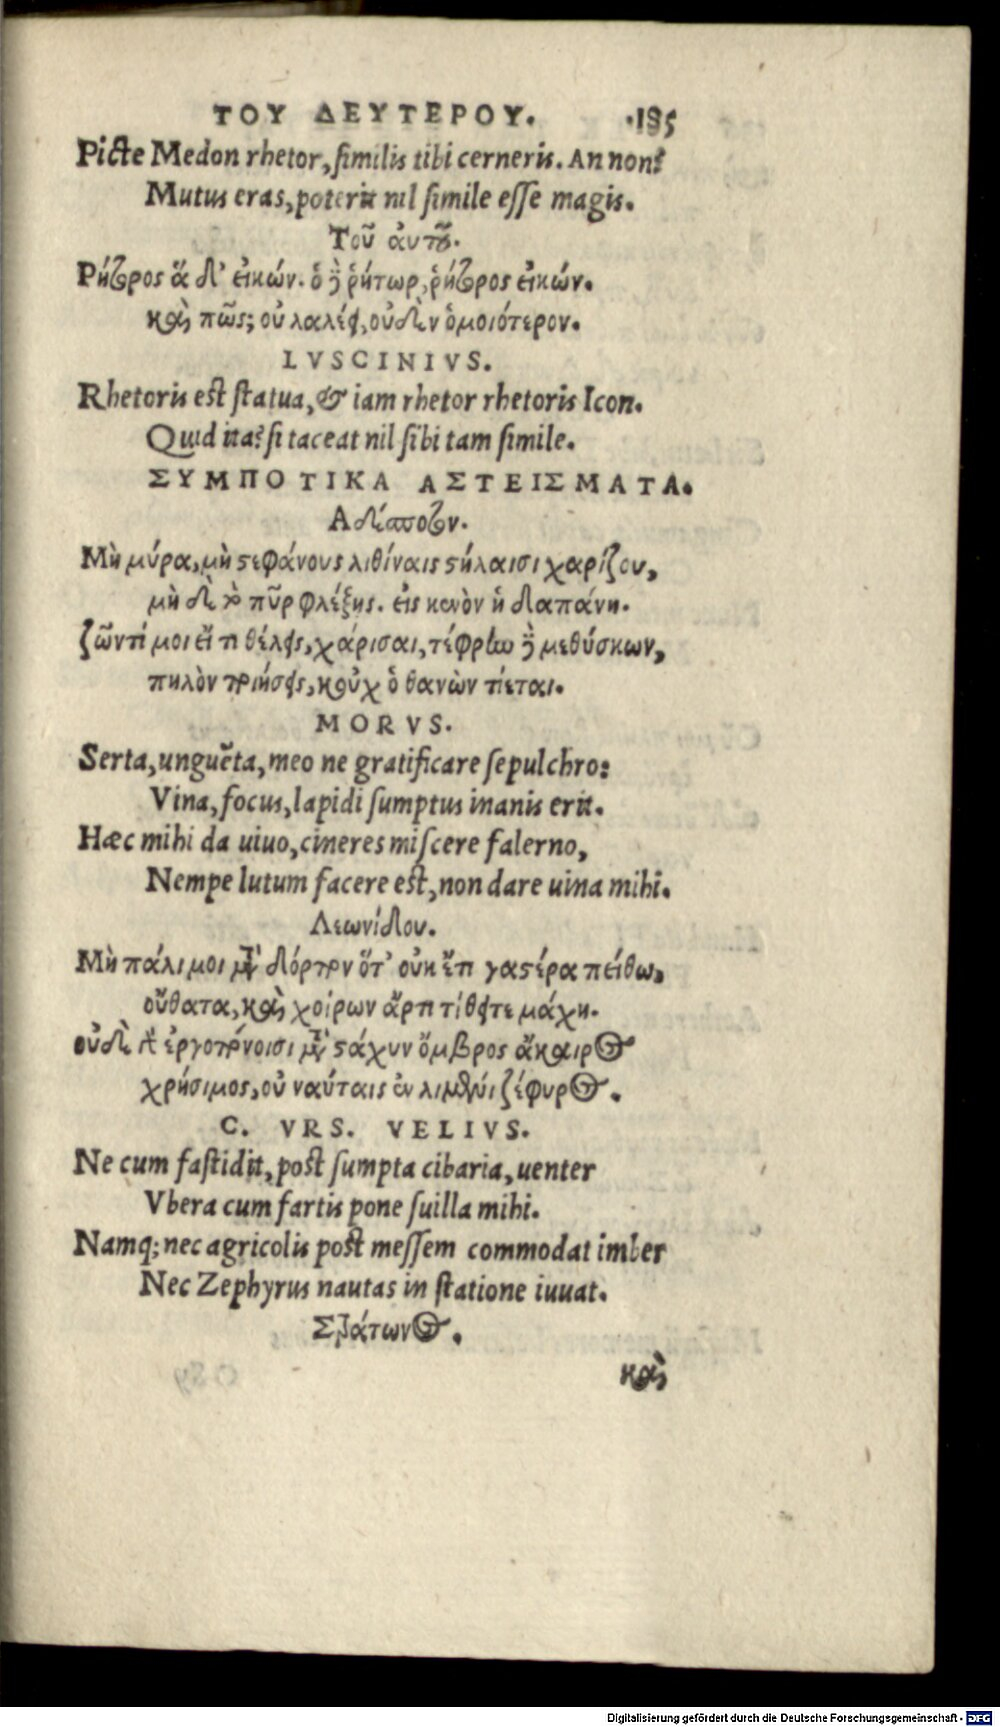 ΤΟΥ ΔΕΥΤΕΡΟΥ. 185
Picte Medon rhetor, similis tibi cerneris. An non?
Mutus eras, poterit nil simile esse magis.
Τοῦ ἀυτοῦ.
Ρήτορος ἅδ' εἰκών. ὁ δὲ ῥήτωρ, ῥήτορος εἰκών.
καὶ πῶς; οὐ λαλέει, οὐδὲν ὁμοιότερον.
LVSCINIVS.
Rhetoris est statua, & iam rhetor rhetoris Icon.
Quid ita? si taceat nil sibi tam simile.
ΣΥΜΠΟΤΙΚΑ ΑΣΤΕΙΣΜΑΤΑ.
Αδέσποτον.
Μὴ μύρα, μὴ ϛεφάνους λιθίναις ϛήλαισι χαρίζου,
μὴ δὲ τὸ πῦρ φλέξῃς. εἰς κενὸν ἡ δαπάνη.
ζῶντί μοι εἴ τι θέλεις, χάρισαι, τέφρην δὲ μεθύσκων,
πηλὸν ποιήσεις, κοὐχ ὁ θανὼν πίεται.
MORVS.
Serta, unguēta, meo ne gratificare sepulchro:
Vina, focus, lapidi sumptus inanis erit.
Hæc mihi da uiuo, cineres miscere falerno,
Nempe lutum facere est, non dare uina mihi.
Λεωνίδου.
Μὴ πάλι μοι μετὰ δόρπον ὅτ' οὐκ ἔτι γαϛέρα πείθω,
οὔθατα, καὶ χοίρων ἄρτι τίθειτε μάχη.
οὐδὲ γὰρ ἐργοπόνοισι μετὰ ϛάχυν ὄμβρος ἄκαιρος
χρήσιμος, οὐ ναύταις ἐν λιμένι ζέφυρος.
C. VRS. VELIVS.
Ne cum fastidit, post sumpta cibaria, uenter
Vbera cum fartis pone suilla mihi.
Namq; nec agricolis post messem commodat imber
Nec Zephyrus nautas in statione iuuat.
Στράτωνος.
καὶ
Digitalisierung gefördert durch die Deutsche Forschungsgemeinschaft - DFG